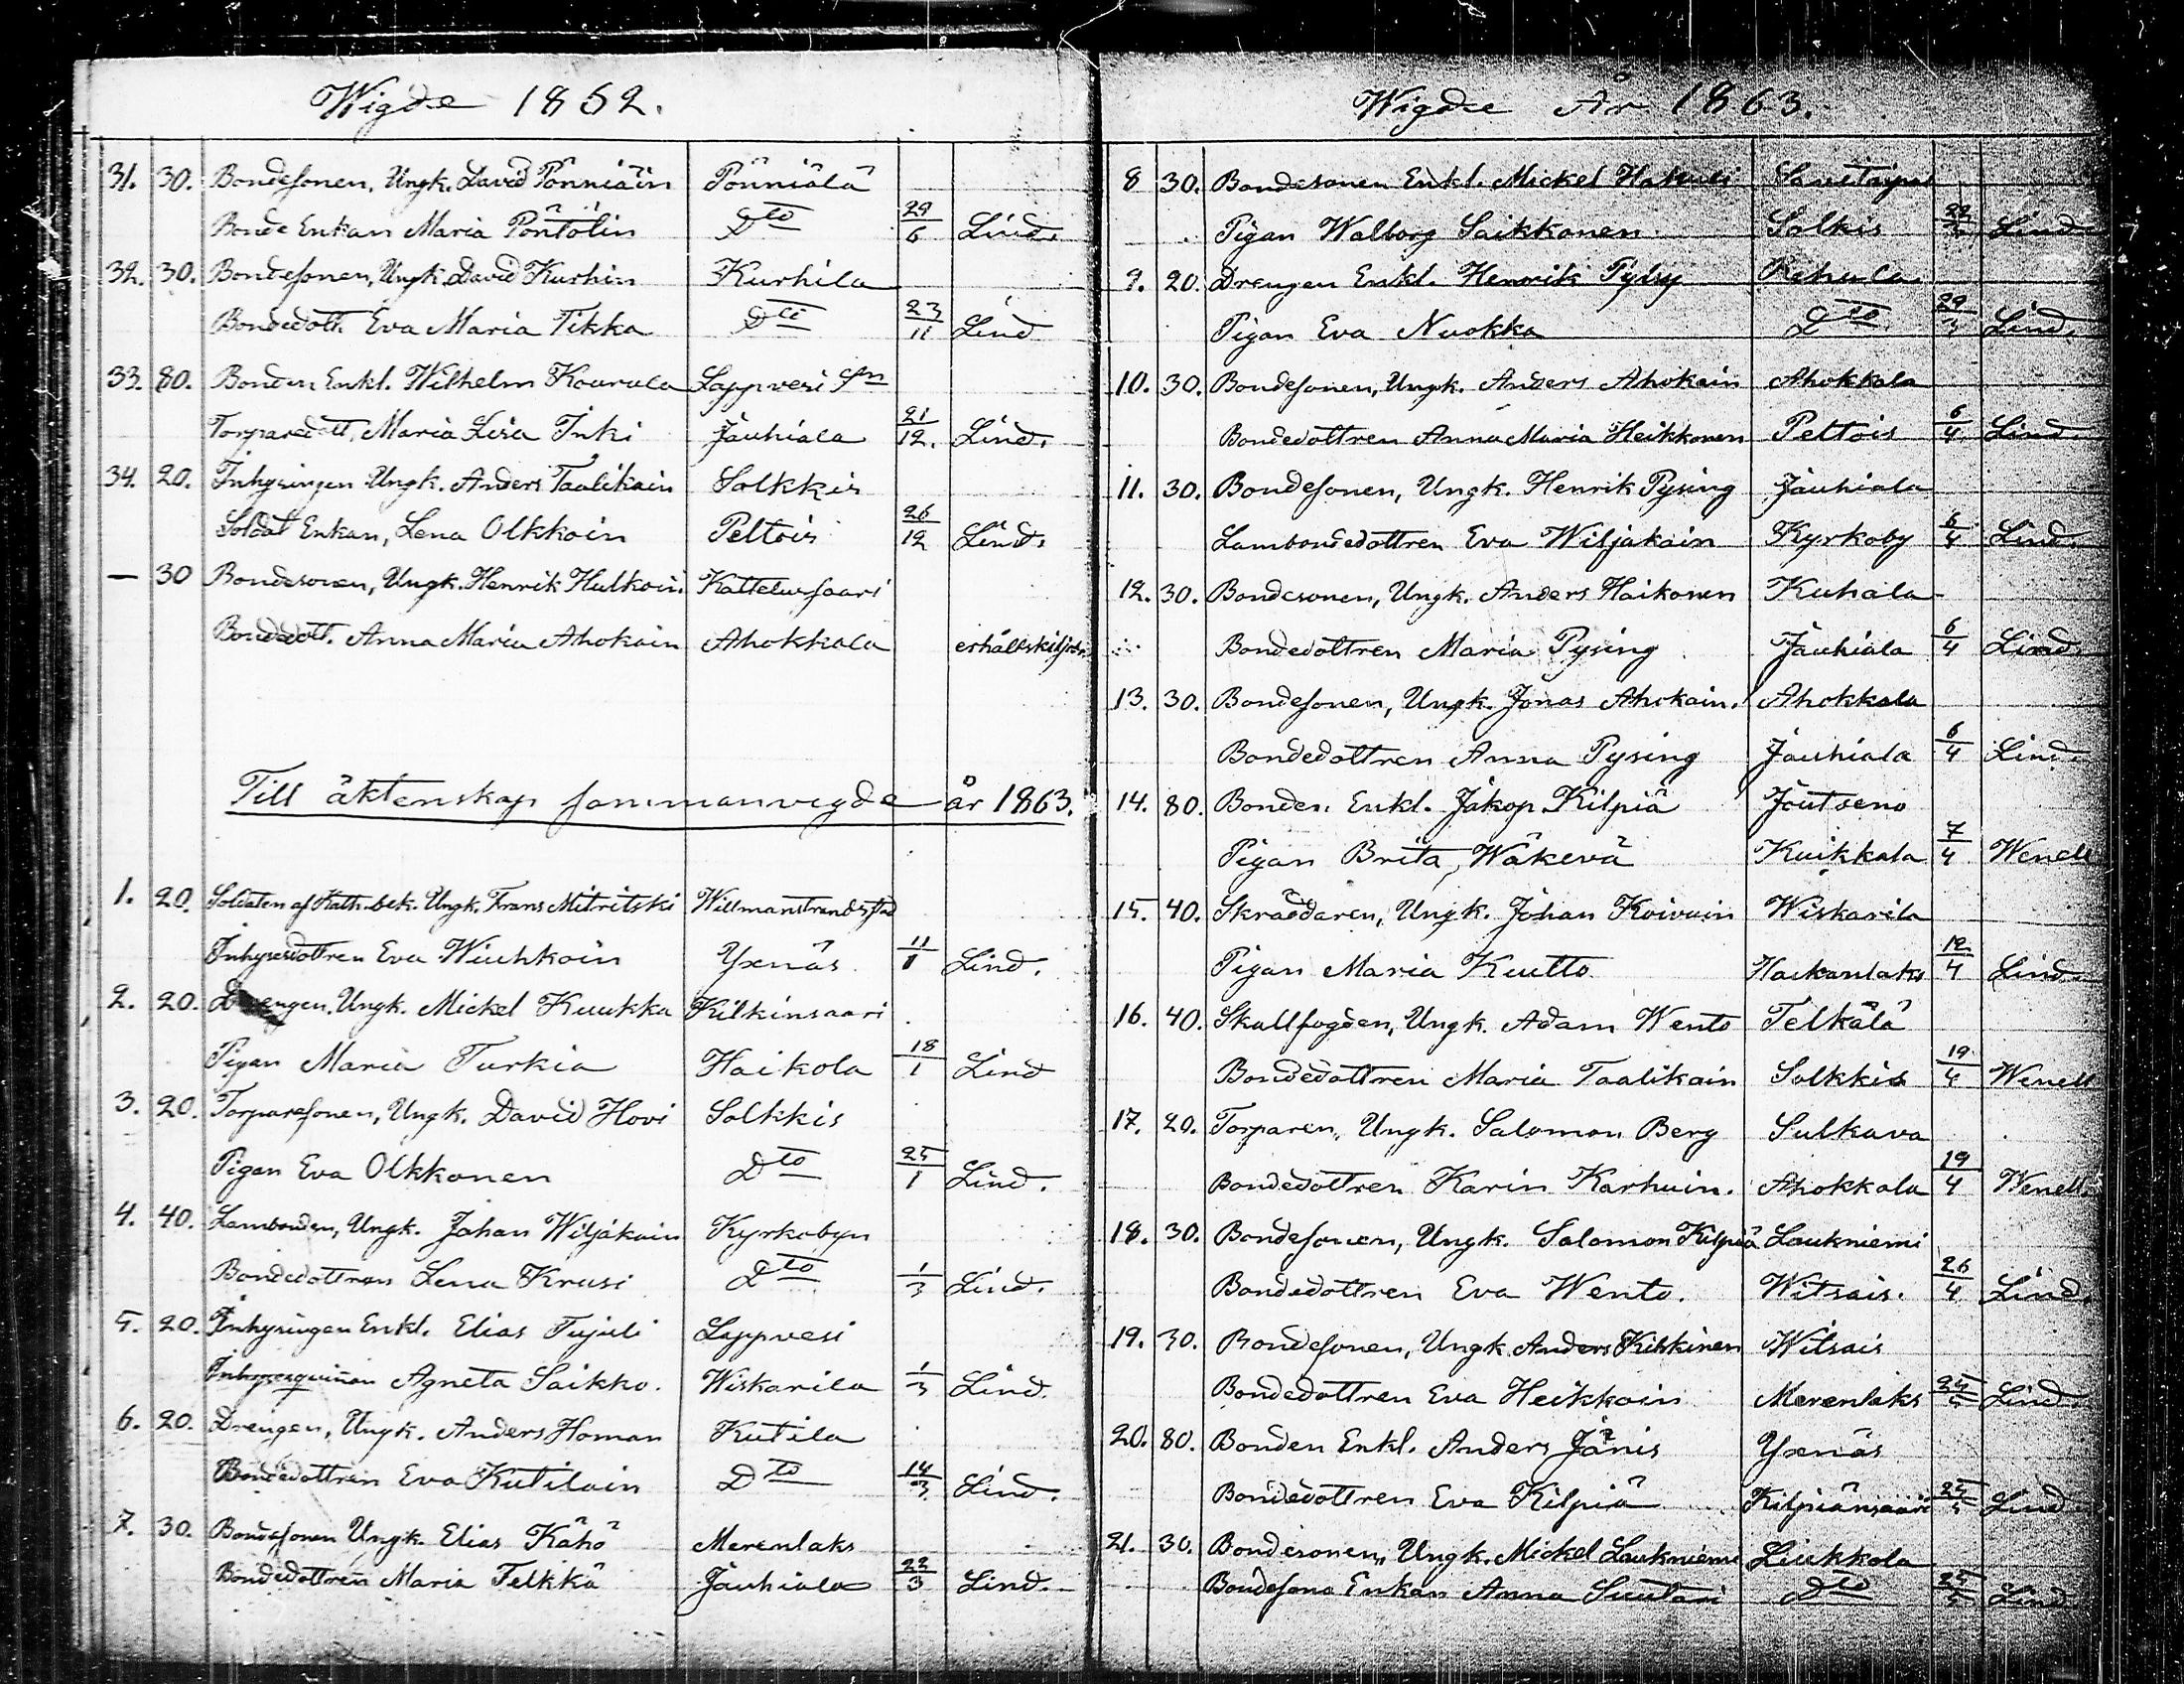 Wigde 1862.
31. 30. Bondesonen, Ungk. David Pönniäin Pönniälä
Bonde Enkan Maria Pöntölin Dto 29/6 Lind.
32. 30. Bondesonen, Ungk. David Kurhin Kurhila
Bondedott. Eva Maria Tikka Dto 23/11 Lind
33. 80. Bonden Enkl. Wilhelm Kourula Lappvesi Sn
Torparedott. Maria Lisa Inki Jauhiala 21/12. Lind.
34. 20. Inhysingen Ungk. Anders Taalikain Solkkis
Soldat Enkan, Lena Olkkoin Peltois 26/12 Lind.
— 30 Bondesonen, Ungk. Henrik Hulkoin Kattelussaari
Bondedott. Anna Maria Ahokain Ahokkala erhöll skiljobr.
Till äktenskap sammanvigde år 1863.
1. 20. Soldaten af Ruth. bek. Ungk. Frans Mitritski Willmanstrands stad
Inhysesdottren Eva Wiuhkoin Yxnäs 11/1 Lind.
2. 20. Drengen, Ungk. Mickel Kuukka Kilkinsaari
Pigan Maria Turkia Haikola 18/1 Lind
3. 20. Torparesonen, Ungk. David Hovi Solkkis
Pigan Eva Olkkonen Dto 25/1 Lind.
4. 40. Lambonden, Ungk. Johan Wiljakain Kyrkobyn
Bondedottren Lena Krusi Dto 1/3 Lind.
5. 20. Inhysingen Enkl. Elias Tujuli Lappvesi
Inhysesqvinnan Agneta Saikko. Wiskarila 1/3 Lind.
6. 20. Drengen, Ungk. Anders Homan Kutila
Bondedottren Eva Kutilain Dto 14/3 Lind.
7. 30. Bondesonen Ungk. Elias Kähö Merenlaks
Bondedottren Maria Telkkä Jauhiala 22/3 Lind.
Wigde År 1863.
8 30. Bondesonen Enkl. Mickel Savitaipal
Pigan Walborg Saikkonen Solkis 22/3 Lind
9. 20. Drengen Enkl. Henrik Pylsy Rehula
Pigan Eva Nuokka Dto 29/3 Lind.
10. 30. Bondesonen, Ungk. Anders Ahokain Ahokkala
Bondedottren Anna Maria Heikkonen Peltois 6/4 Lind.
11. 30. Bondesonen, Ungk. Henrik Pysing Jauhiala
Lambondedottren Eva Wiljakain Kyrkoby 6/4 Lind.
12. 30. Bondesonen, Ungk. Anders Haikonen Kuhala
Bondedottren Maria Pysing Jauhiala 6/4 Lind.
13. 30. Bondesonen, Ungk. Jonas Ahokain. Ahokkala
Bondedottren Anna Pysing Jauhiala 6/4 Lind.
14. 80. Bonden. Enkl. Jakop Kilpiä Joutseno
Pigan Brita Wäkevä Kuikkala 7/4 Wenell
15. 40. Skräddaren, Ungk. Johan Koivuin Wiskarila
Pigan Maria Kuitto Haikanlaks 12/4 Lind.
16. 40. Skallfogden, Ungk. Adam Wento Telkälä
Bondedottren Maria Taalikain Solkkis 19/4 Wenell
17. 20. Torparen, Ungk. Salomon Berg Sulkava
Bondedottren Karin Karhuin. Ahokkala 19/4 Wenell.
18. 30. Bondesonen, Ungk. Salomon Kilpiä Laukniemi
Bondedottren Eva Wento. Witsais. 26/4 Lind.
19. 30. Bondesonen, Ungk. Anders Kilkkinen Witsais
Bondedottren Eva Heikkoin Merenlaks 25/5 Lind.
20. 80. Bonden Enkl. Anders Jänis Yxnäs
Bondedottren Eva Kilpiä Kilpiänsaari 25/5 Lind
21. 30. Bondesonen, Ungk. Mickel Laukniemi Liukkola
Bondesons Enkan Anna Suutari Dto 25/5 Lind